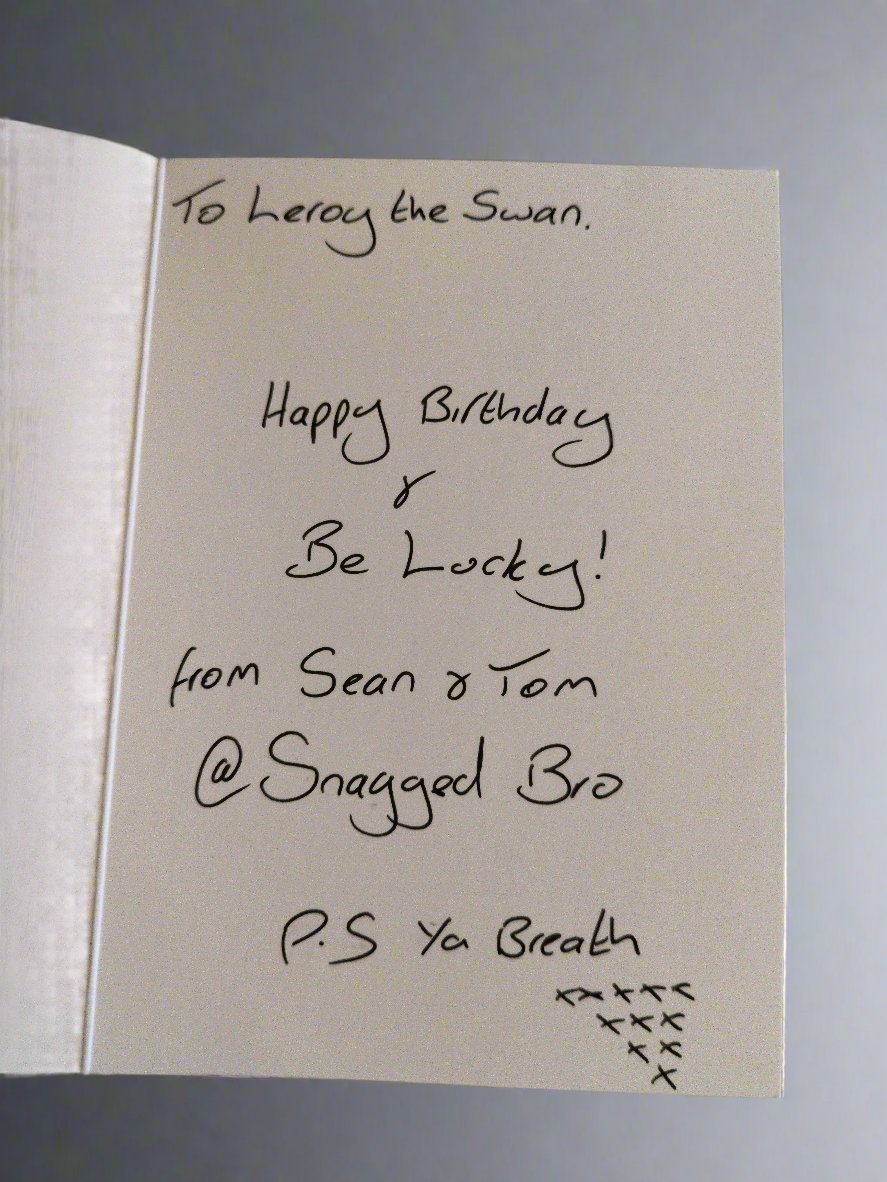 To Leroy the Swan.
Happy Birthday
&
Be Lucky!
from Sean & Tom
@ Snagged Bro
P.S Ya Breath
xxxxx
xxx
xx
x